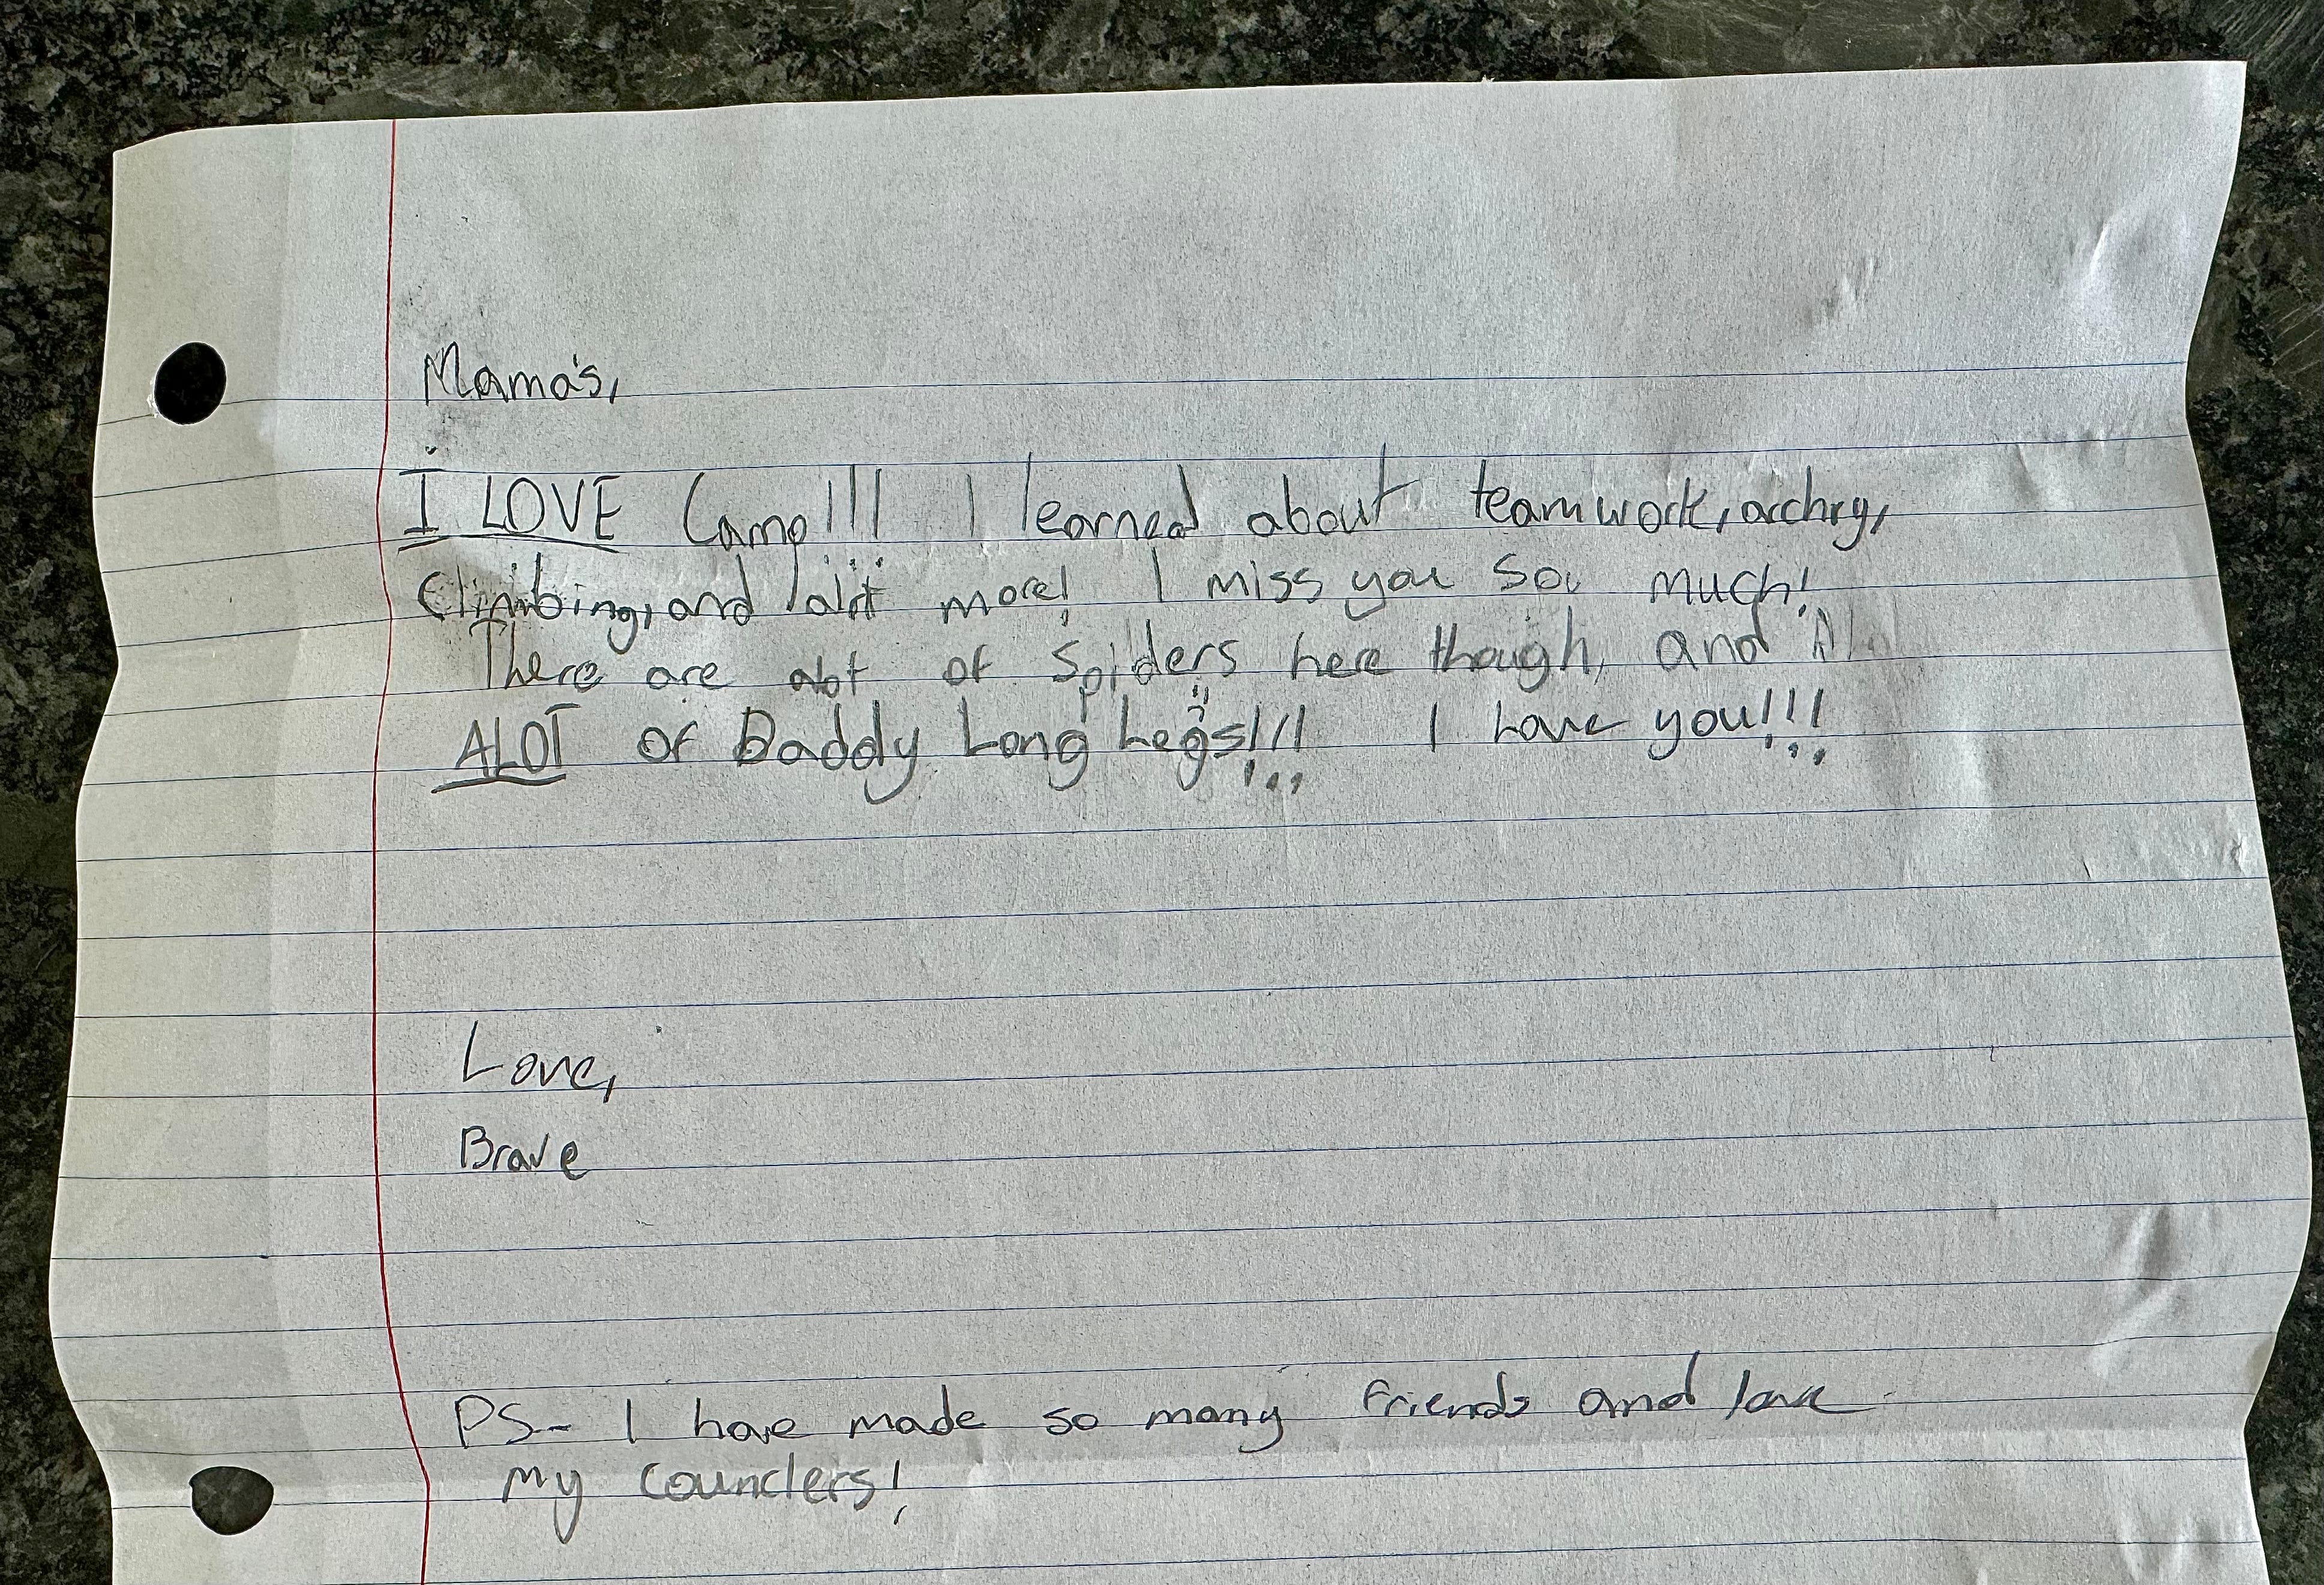 Mama's,
I LOVE Camp!!! I learned about teamwork, archry,
Climbing, and alot more! I miss you so much!
There are alot of Spiders here though, and
ALOT of Daddy Long Legs!!! I Love you!!!
Love,
Brave
PS- I have made so many friends and love
my counclers!